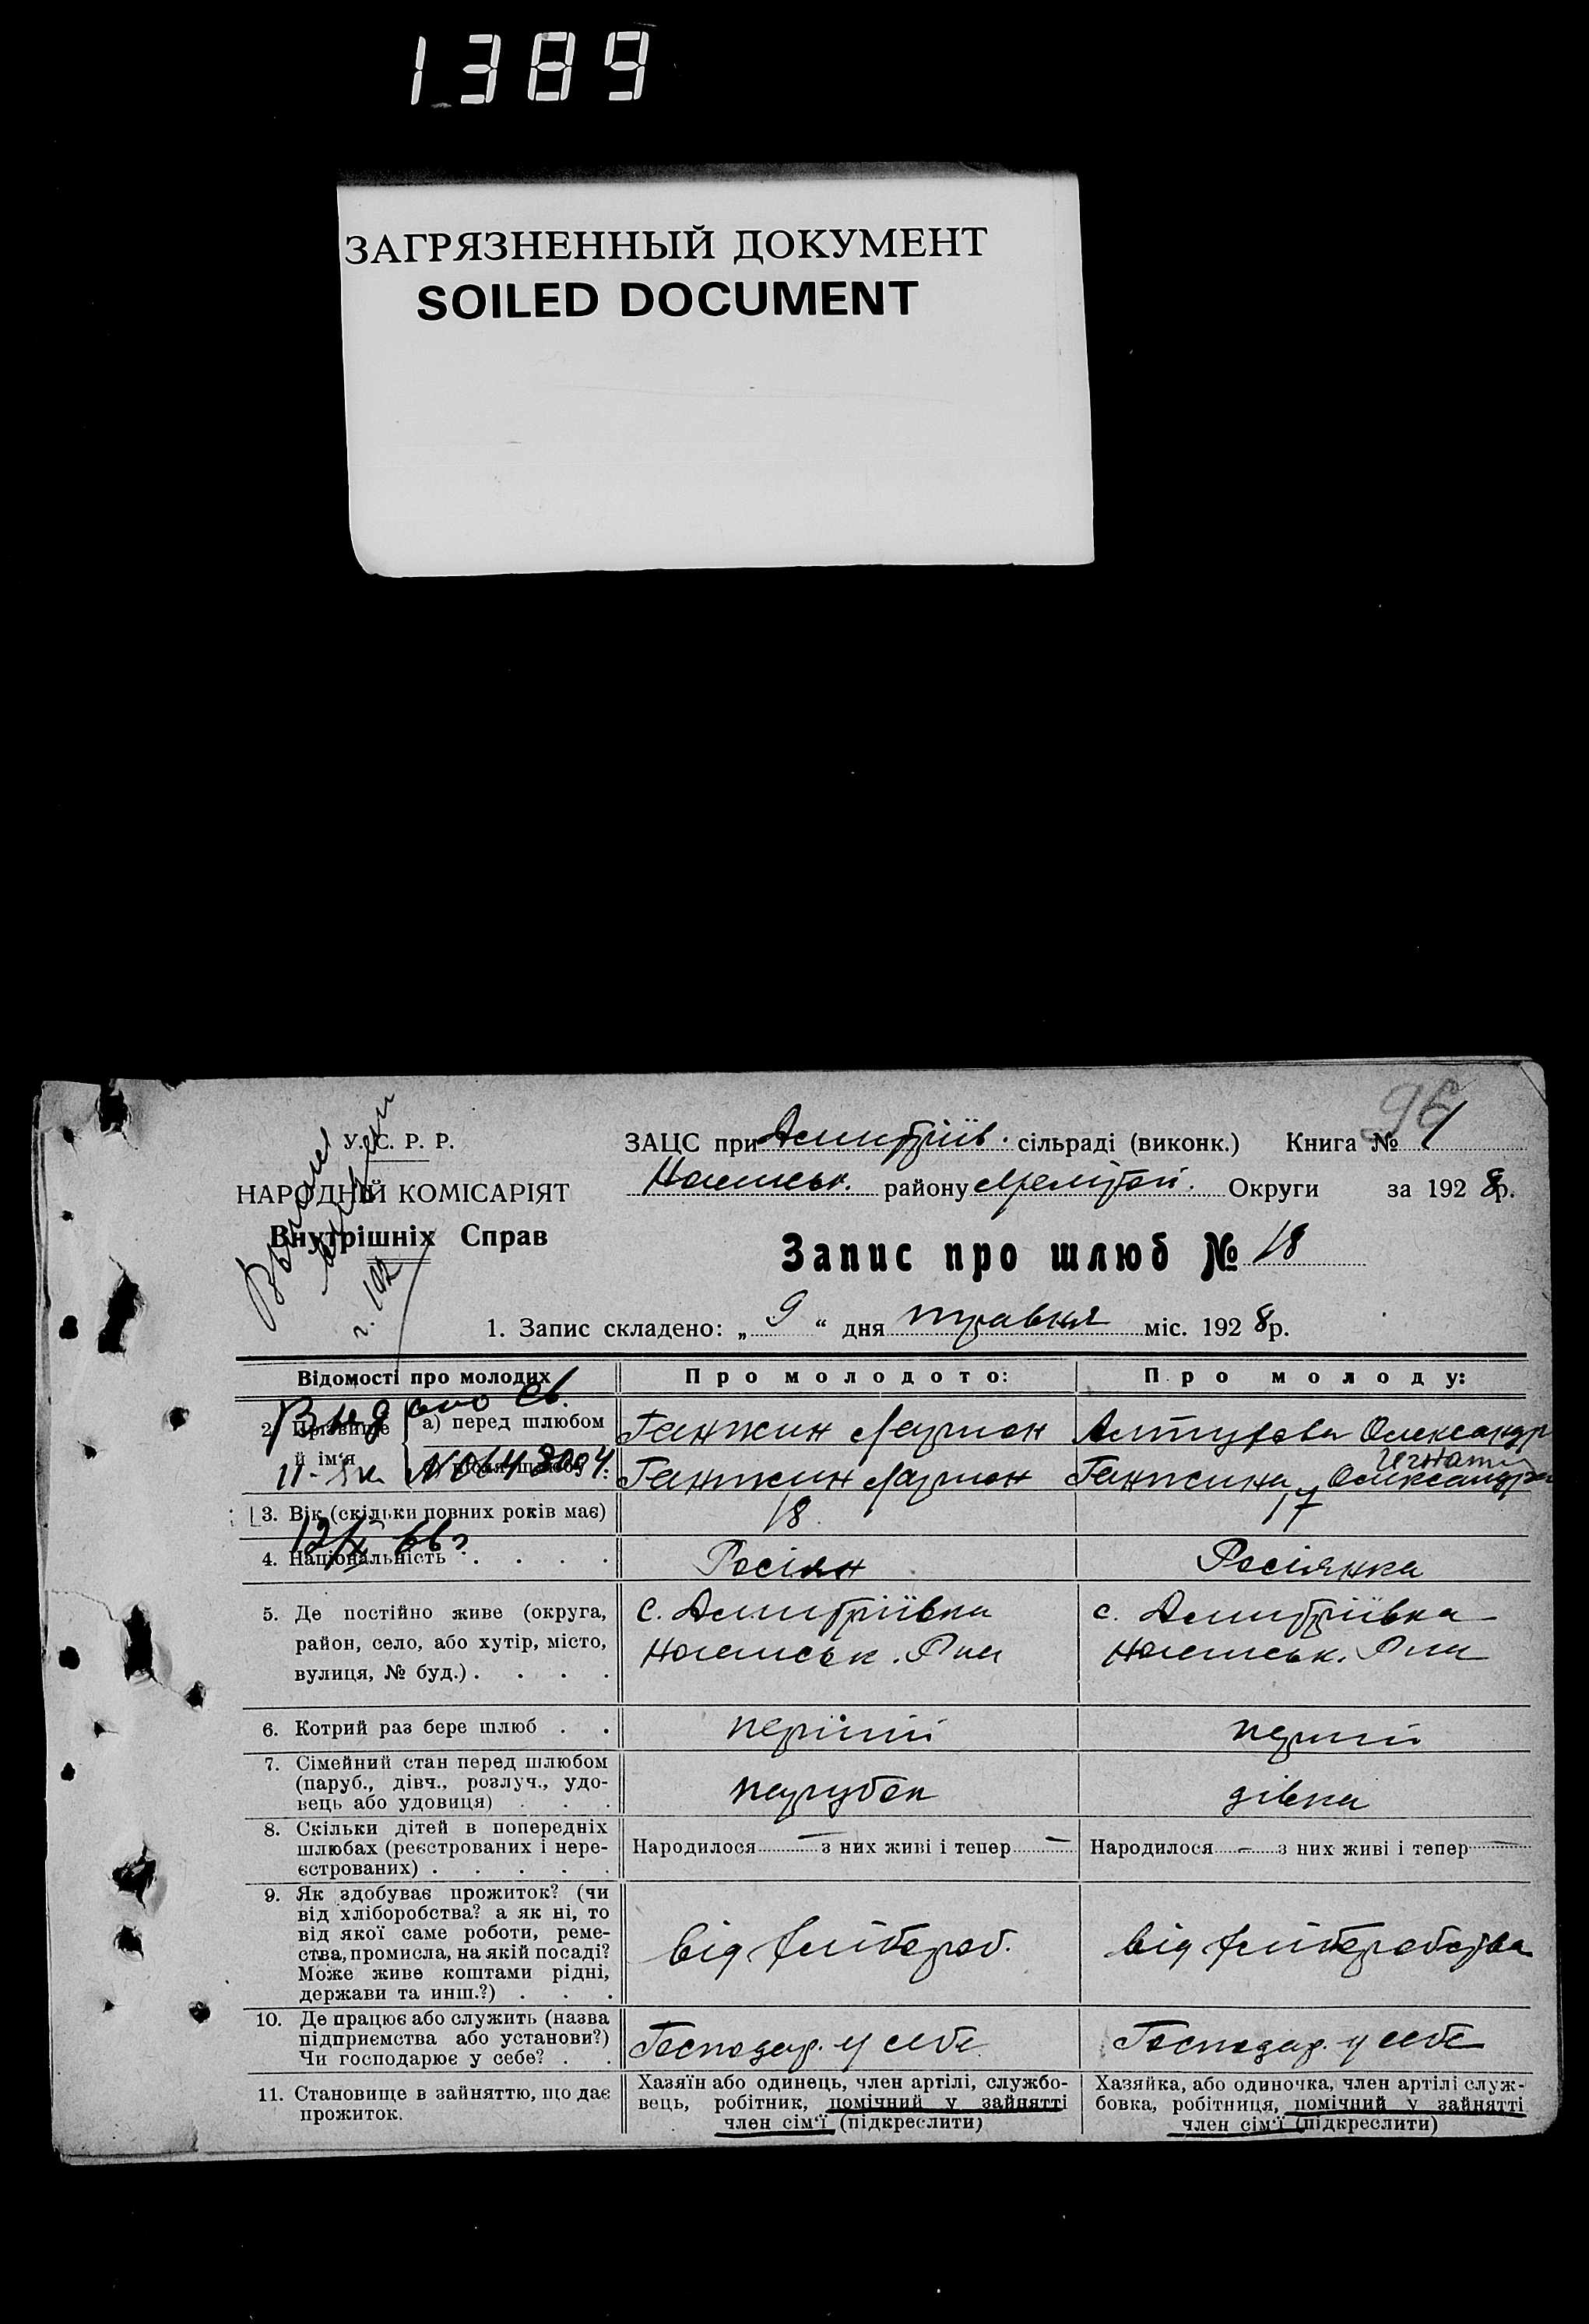 1389
ЗАГРЯЗНЕННЫЙ ДОКУМЕНТ
SOILED DOCUMENT
96
У. С. Р. Р.
НАРОДНІЙ КОМІСАРІЯТ
Внутрішніх Справ
ЗАЦС при Дмитріїв. сільраді (виконк.) Книга № 1
району Округи за 1928 р.
Запис про шлюб № 18
1. Запис складено: „ 9 “ дня травня міс. 1928 р.
Відомості про молодих
Про молодого:
Про молоду:
Выдано св.
11-
№ 0648004
2. Прізвище й ім'я
а) перед шлюбом
Ганжин Ларион
Олександр
б) після шлюбу
Ганжин Ларион
Ганжина Олександра
Игнати
3. Вік (скільки повних років має)
18
17
12/X 66 г
4. Національність . . . .
Росіян
Росіянка
5. Де постійно живе (округа,
район, село, або хутір, місто,
вулиця, № буд.) . . . .
с. Дмитріївка
с. Дмитріївка
6. Котрий раз бере шлюб . .
перший
перший
7. Сімейний стан перед шлюбом
(паруб., дівч., розлуч., удо-
вець або удовиця) . . .
парубок
дівка
8. Скільки дітей в попередніх
шлюбах (реєстрованих і нере-
єстрованих) . . . . .
Народилося — з них живі і тепер —
Народилося — з них живі і тепер —
9. Як здобуває прожиток? (чи
від хліборобства? а як ні, то
від якої саме роботи, реме-
ства, промисла, на якій посаді?
Може живе коштами рідні,
держави та инш.?) . . .
від хлібороб.
від хліборобства
10. Де працює або служить (назва
підприємства або установи?)
Чи господарює у себе? . .
Господар. у себе
Господар. у себе
11. Становище в зайняттю, що дає
прожиток.
Хазяїн або одинець, член артілі, службо-
вець, робітник, помічний у зайнятті
член сім'ї (підкреслити)
Хазяйка, або одиночка, член артілі служ-
бовка, робітниця, помічний у зайнятті
член сім'ї (підкреслити)